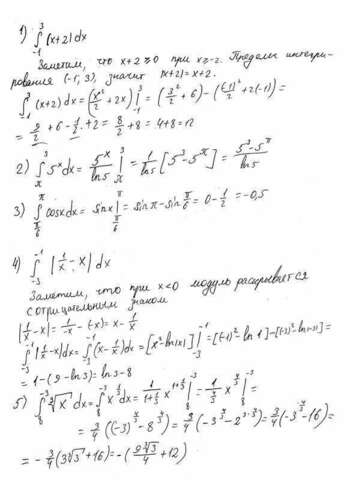 1) ∫₋₁³ |x+2| dx
Заметим, что x+2 ≥ 0 при x ≥ -2. Пределы интегри-
рования (-1; 3), значит |x+2| = x+2.
∫₋₁³ (x+2) dx = (x²/2 + 2x)|₋₁³ = (3²/2 + 6) - ((-1)²/2 + 2(-1)) =
= 9/2 + 6 - 1/2 + 2 = 8/2 + 8 = 4+8 = 12
2) ∫_π³ 5ˣ dx = 5ˣ/ln5 |_π³ = 1/ln5 [5³ - 5^π] = (5³ - 5^π)/ln5
3) ∫_{π/6}^π cosx dx = sinx |_{π/6}^π = sinπ - sin π/6 = 0 - 1/2 = -0,5
4) ∫₋₃⁻¹ |1/x - x| dx
Заметим, что при x<0 модуль раскрывается
с отрицательным знаком
|1/x - x| = 1/-x - (-x) = x - 1/x
∫₋₃⁻¹ |1/x - x| dx = ∫₋₃⁻¹ (x - 1/x) dx = [x² - ln|x|]|₋₃⁻¹ = [(-1)² - ln 1] - [(-3)² - ln|-3|] =
= 1 - (9 - ln3) = ln3 - 8
5) ∫₈⁻³ ∛x dx = ∫₈⁻³ x^{1/3} dx = 1/(1+1/3) x^{1+1/3} |₈⁻³ = 1/(4/3) x^{4/3} |₈⁻³ =
= 3/4 ((-3)^{4/3} - 8^{4/3}) = 3/4 (-3^{4/3} - 2^{3·4/3}) = 3/4 (-3^{4/3} - 16) =
= -3/4 (3∛3 + 16) = -(9∛3/4 + 12)